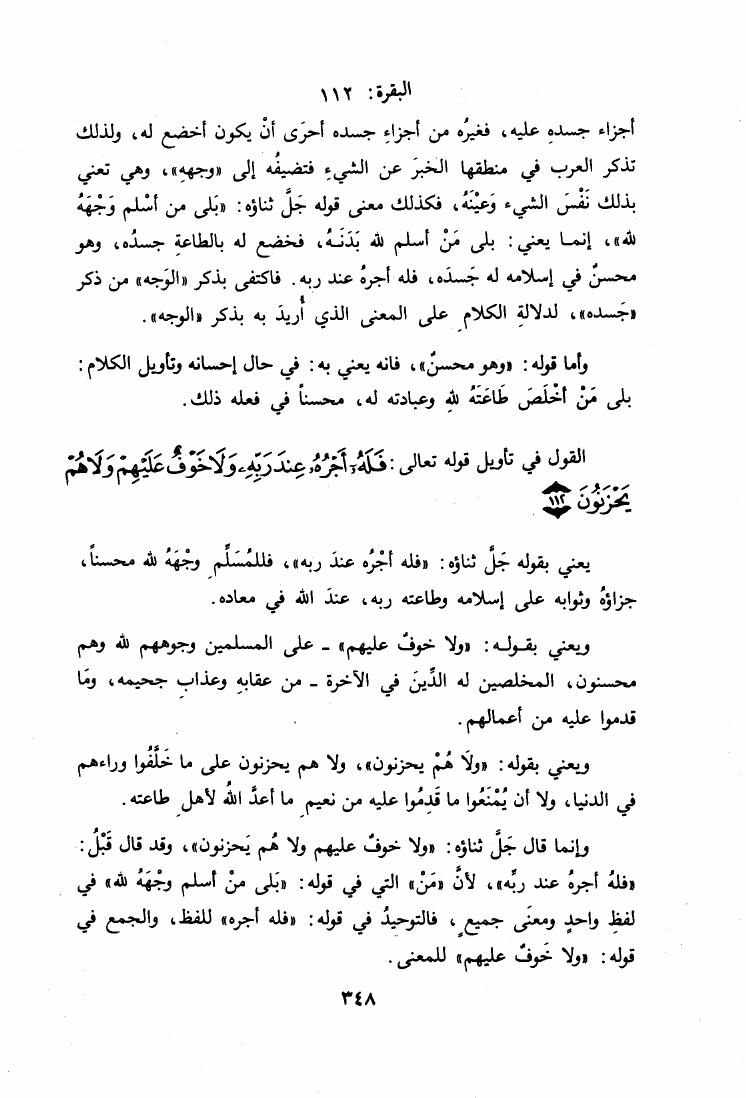 البقرة: ١١٢
أجزاء جسدهِ عليه، فغيرُه من أجزاءِ جسده أحرَى أنْ يكون أخضع له، ولذلك
تذكر العرب في منطقها الخبرَ عن الشيءِ فتضيفُه إلى «وجههِ»، وهي تعني
بذلك نَفْسَ الشيء وَعيْنَهُ، فكذلك معنى قوله جَلَّ ثناؤه: «بَلى من أسْلم وَجْهَهُ
لله»، إنمـا يعني: بلى مَنْ أسلم لله بَدَنَـهُ، فخضع له بالطاعةِ جسدُه، وهو
محسنٌ في إسلامه له جَسدَه، فله أجرهُ عند ربه. فاكتفى بذكر «الوَجه» من ذكر
«جَسده»، لدلالةِ الكلامِ على المعنى الذي أُريدَ به بذكر «الوجه».
وأما قوله: «وهو محسنٌ»، فانه يعني به: في حال إحسانه وتأويل الكلام:
بلى مَنْ أخْلَصَ طَاعَتَهُ للهِ وعبادته له، محسناً في فعله ذلك.
القول في تأويل قوله تعالى: فَلَهُۥٓ أَجْرُهُۥ عِندَ رَبِّهِۦ وَلَا خَوْفٌ عَلَيْهِمْ وَلَا هُمْ
يَحْزَنُونَ ١١٢
يعني بقوله جَلَّ ثناؤه: «فله أجْرُه عندَ ربه»، فللمُسَلِّمِ وجْهَهُ لله محسناً،
جزاؤهُ وثوابه على إسلامه وطاعته ربه، عندَ الله في معاده.
ويعني بقـولـه: «ولا خوفٌ عليهم» ـ على المسلمين وجوههم لله وهم
محسنون، المخلصين له الدِّينَ في الآخرة ـ من عقابهِ وعذابِ جحيمه، ومَا
قدموا عليه من أعمالهم.
ويعني بقوله: «ولَا هُمْ يحزنون»، ولا هم يحزنون على ما خَلَّفُوا وراءهم
في الدنيا، ولا أن يُمْنَعُوا ما قَدِمُوا عليه من نعيمِ ما أعدَّ اللهُ لأهلِ طاعته.
وإنما قال جَلَّ ثناؤه: «ولا خوفٌ عليهم ولا هُم يَحزنون»، وقد قال قَبْلُ:
«فلهُ أجرهُ عند ربِّه»، لأنَّ «مَنْ» التي في قوله: «بَلى منْ أسلم وجْهَهُ لله» في
لفظِ واحدٍ ومعنَى جميعٍ، فالتوحيدُ في قوله: «فله أجره» للفظ، والجمع في
قوله: «ولا خَوفٌ عليهم» للمعنى.
٣٤٨